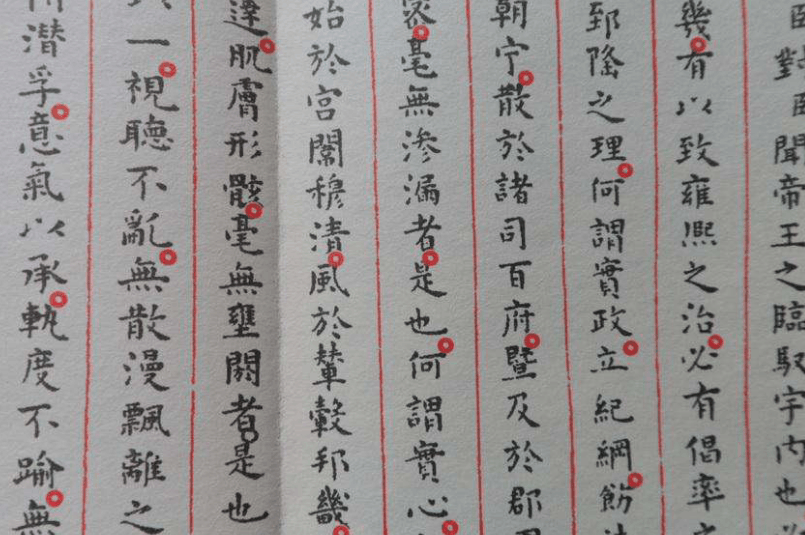 臣對臣聞帝王之臨馭宇內也
幾有以致雍熙之治必有倡率
郅隆之理何謂實政立紀綱飭
朝宁散於諸司百府暨及於郡
毫無滲漏者是也何謂實心
始於宮闈穆清風於輦轂邦畿
達肌膚形骸毫無壅閼者是也
一視聽不亂無散漫飄離之
潛孚意氣以承執度不踰無